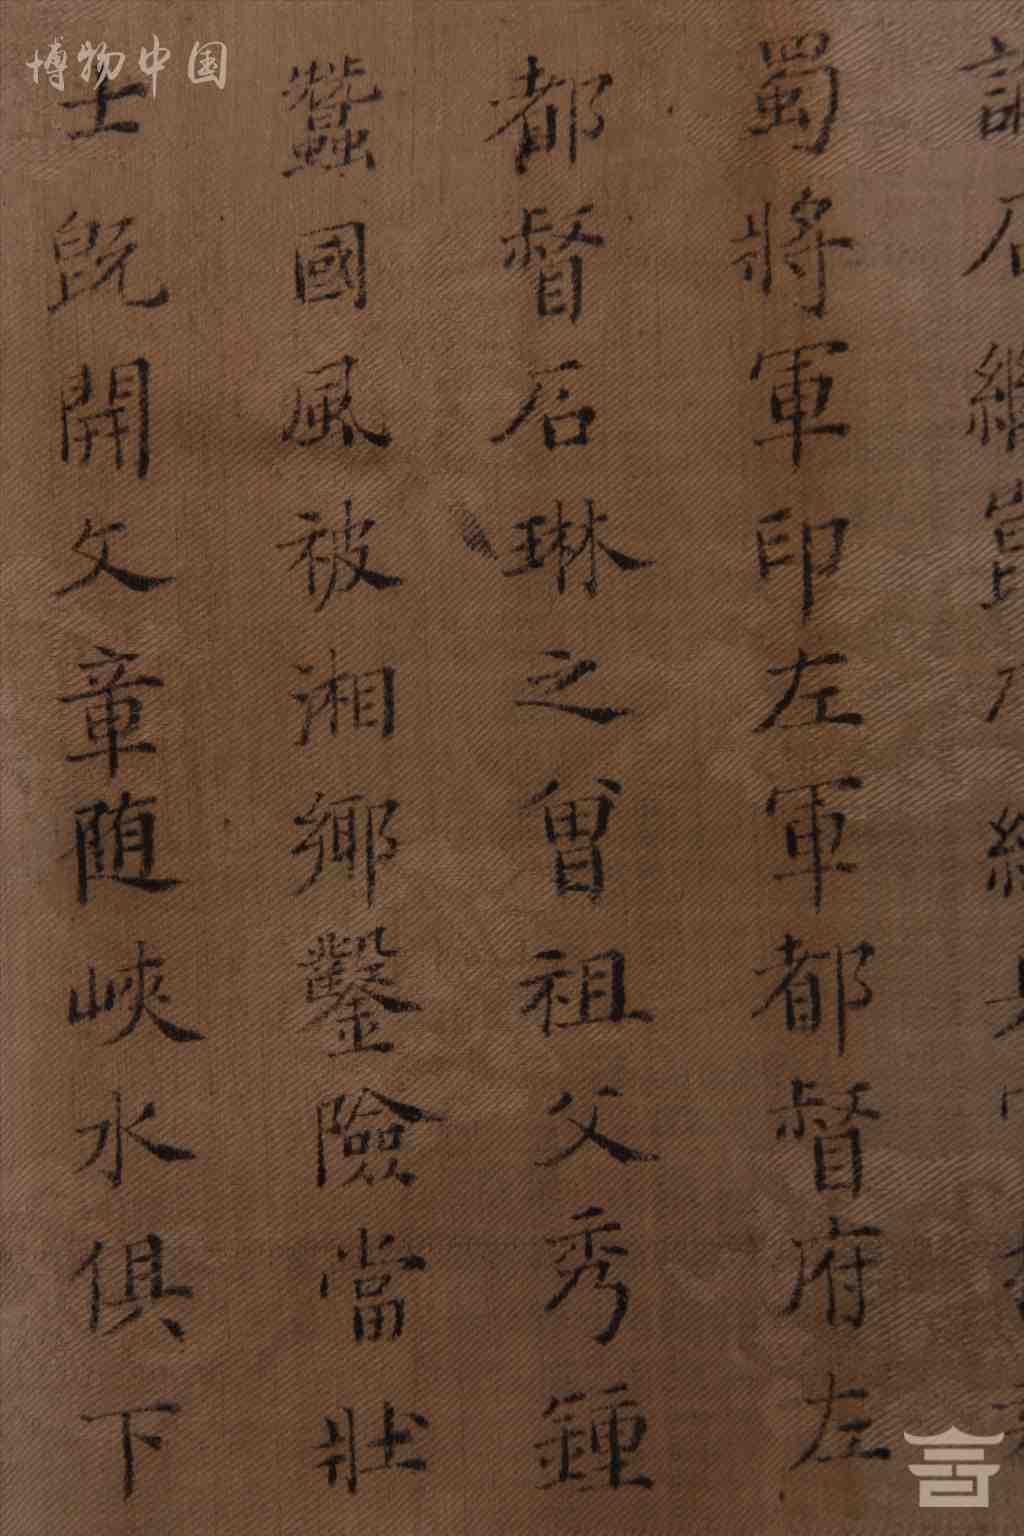 蜀將軍印左軍都督府左
都督石琳之曾祖父秀鍾
蠶國風被湘鄉鑿險當壯
士旣開文章随峽水俱下
博物中国